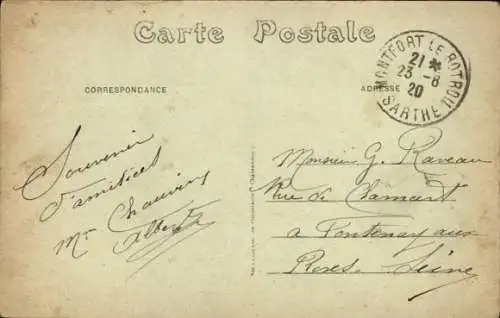 Carte Postale
CORRESPONDANCE
ADRESSE
MONTFORT LE ROTROU
21 *
23 - 8
20
SARTHE
Souvenir
d'amitiés
Mr Chauvin
Albert
Monsieur G. Raveau
Rue de Clamart
a Fontenay aux
Roses. Seine